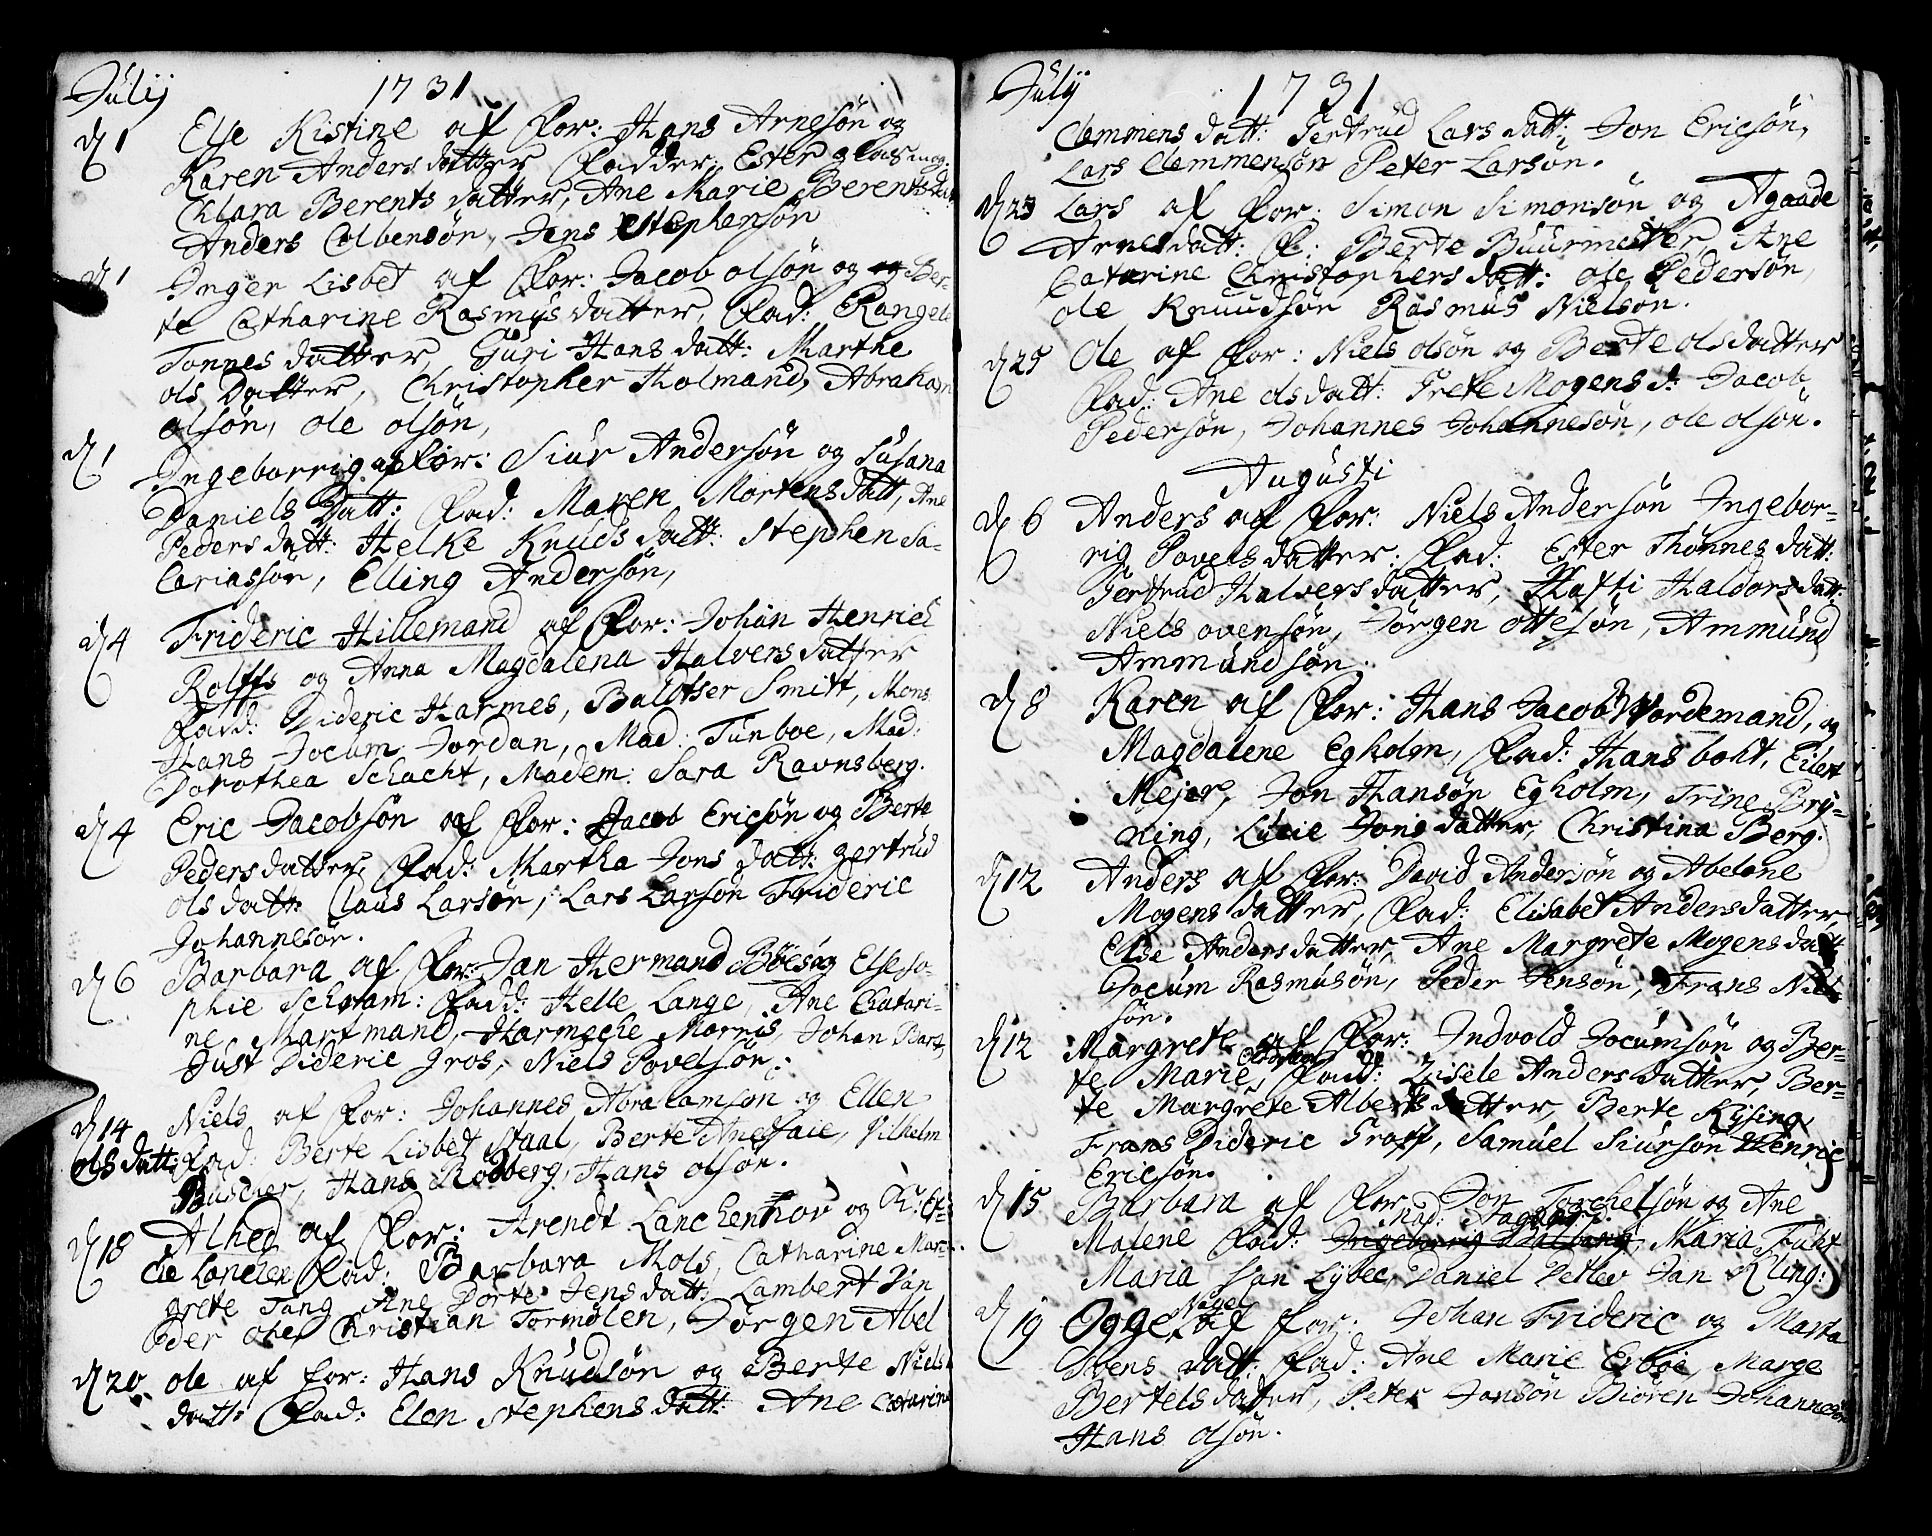 Julij 1731
d 1 Else Kistine af For: Hans Arnesön og
Karen Anders datter Fadder, Ester
Chlara Berents datter, Ane Marie Berents dat
Anders Colbensön, Jens Stephensön
d 1 Inger Lisbet af For: Jacob olsön og Ber-
te Catharine Rasmus datter, Fad: Rangele
Tonnes datter Guri Hans datt: Marthe
ols Datter, Christopher Holmand, Abraham
olsön, ole olsön,
d 1 Ingeborrig af For: Siur Andersön og Susana
Daniels Datt: Fad: Maren Mortens datt, Ane
Peders datt: Helke Knuds datt: Stephen Sa-
cariassön, Elling Andersön,
d 4 Frideric Hillemand af For: Johan Henrich
Rolffs og Anna Magdalena Halvers datter
Fad: Dideric Harmes, Baldtser Smitt, Mons
Hans Jocum Jordan, Mad: Tunboe, Mad:
Dorothea Schacht, Madem: Sara Ravnsberg.
d 4 Eric Jacobsön af For: Jacob Ericsön og Berte
Peders datter, Fad: Martha Jons datt: gertrud
ols datt: Claus Larsön, Lars Larsön Frideric
Johannesön.
d 6 Barbara af For: Jan Hermand Böes og Else so-
phie Schram: Fadd: Helle Lange, Ane Chatari-
ne Martmand, Harmeche Morris, Johan
Just Dideric Gros, Niels Povelsön.
d 14 Niels af For: Johannes Abrahamsön og Ellen
ols datt: Fad: Berte Lisbet Staal, Berte Ane Faie, Vilhelm
Buscher, Hans Rodberg, Hans olsön.
d 18 Alhed af For: Arendt Lanchenhor og
Lancken Fad: Barbara Mols, Catharine Mar-
grete Tang Ane Dorte Jens datt: Lambert Van
Christian Tormölen, Jörgen Abel
d 20 ole af for: Hans Knudsön og Berte Niels
datt: Fad: Elen Stephens datt: Ane Catarine
July 1731
Clemmens datt: Gertrud Lars datt: Jon Ericsön,
Lars Clemmensön Peter Larsön.
d 23 Lars af For: Simon Simonsön og Agaade
Arnes datt: F: Berte Buurmester Ane
Catarine Christophers datt: ole Pedersön,
ole Knuudsön Rasmus Nielsön.
d 25 Ole af For: Niels olsön og Berte ols datter
Fad: Ane ols datt: Grete Mogens d: Jacob
Pedersön, Johannes Johannesön, ole olsön.
Augusti
d 6 Anders af For: Niels Andersön Ingebor-
rig Povels datter: Fad: Ester Thönnes datt:
Gertrud Halvers datter, Haldors datt:
Niels ovensön, Jörgen ottesön, Ammund
Ammundsön.
d 8 Karen af For: Hans Jacob Wordemand, og
Magdalene Egholm, Fad: Hans boht, Eilert
Mejer, Jon Hansön Egholm, Trine Bry-
ning, Lucie Jons datter, Christina Berg.
d 12 Anders af For: David Andersön og Abelone
Mogens datter, Fad: Elisabet Anders datter
Else Anders datter, Ane Margrete Mogens datt
Jocum Rasmusön, Peder Jensön, Frans Niel
sön.
d 12 Margrete af For: Indvold Jocumsön og Ber-
te Marie Fad: Zisele Anders datter, Ber-
te Margrete Alberts datter, Berte Kysing
Frans Dideric Groff, Samuel Siursön Henric
Ericsön.
d 15 Barbara af For: Jon Torchelsön og Ane
Mad:
Malene Fad: Maria Fuhr
Maria van Lybec, Daniel Detlev Jan Kling:
d 19 Ogge af for: Johan Frideric Nagel og Marta
Svens datt: Fad: Ane Marie Erboe, Marge
Bertels datter, Peter Jonsön Biören Johannesön
Hans olsön.